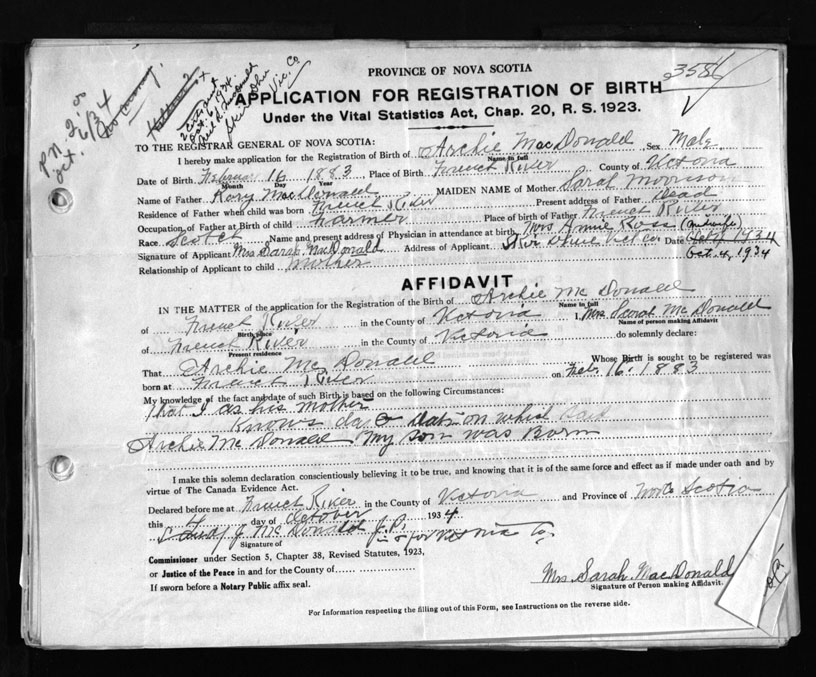 358
PROVINCE OF NOVA SCOTIA
APPLICATION FOR REGISTRATION OF BIRTH
Under the Vital Statistics Act, Chap. 20, R. S. 1923.
P.N. 2.00
Oct. 6/34
2 Certs sent
Oct. 6, 1934.
Vic. Co.
TO THE REGISTRAR GENERAL OF NOVA SCOTIA:
I hereby make application for the Registration of Birth of Archie MacDonald Sex Male
Name in full
Date of Birth February 16 1883 Place of Birth French River County of Victoria
Month Day Year
Name of Father Rory MacDonald MAIDEN NAME of Mother Sarah Morrison
Residence of Father when child was born French River Present address of Father Dead
Occupation of Father at Birth of child Farmer Place of birth of Father French River
Race Scotch Name and present address of Physician in attendance at birth Mrs Annie Ross (midwife)
Signature of Applicant Mrs Sarah MacDonald Address of Applicant Vict Co Date 1934
Oct. 4, 1934
Relationship of Applicant to child Mother
AFFIDAVIT
IN THE MATTER of the application for the Registration of the Birth of Archie Mc Donald
Name in full
of French River in the County of Victoria I, Mrs Sarah McDonald
Birth place Name of person making Affidavit
of French River in the County of Victoria do solemnly declare:
Present residence
That Archie Mc Donald Whose Birth is sought to be registered was
born at French River on Feb. 16. 1883
My knowledge of the fact and date of such Birth is based on the following Circumstances:
That I as his mother
Knows day & date on which said
Archie Mc Donald My son was Born
I make this solemn declaration conscientiously believing it to be true, and knowing that it is of the same force and effect as if made under oath and by
virtue of The Canada Evidence Act.
Declared before me at French River in the County of Victoria and Province of Nova Scotia
this 4 day of October 1934
J. McDonald J.P.
Signature of in & for Victoria Co,
Commissioner under Section 5, Chapter 38, Revised Statutes, 1923,
or Justice of the Peace in and for the County of
If sworn before a Notary Public affix seal.
Mrs. Sarah MacDonald
Signature of Person making Affidavit.
For Information respecting the filling out of this Form, see Instructions on the reverse side.